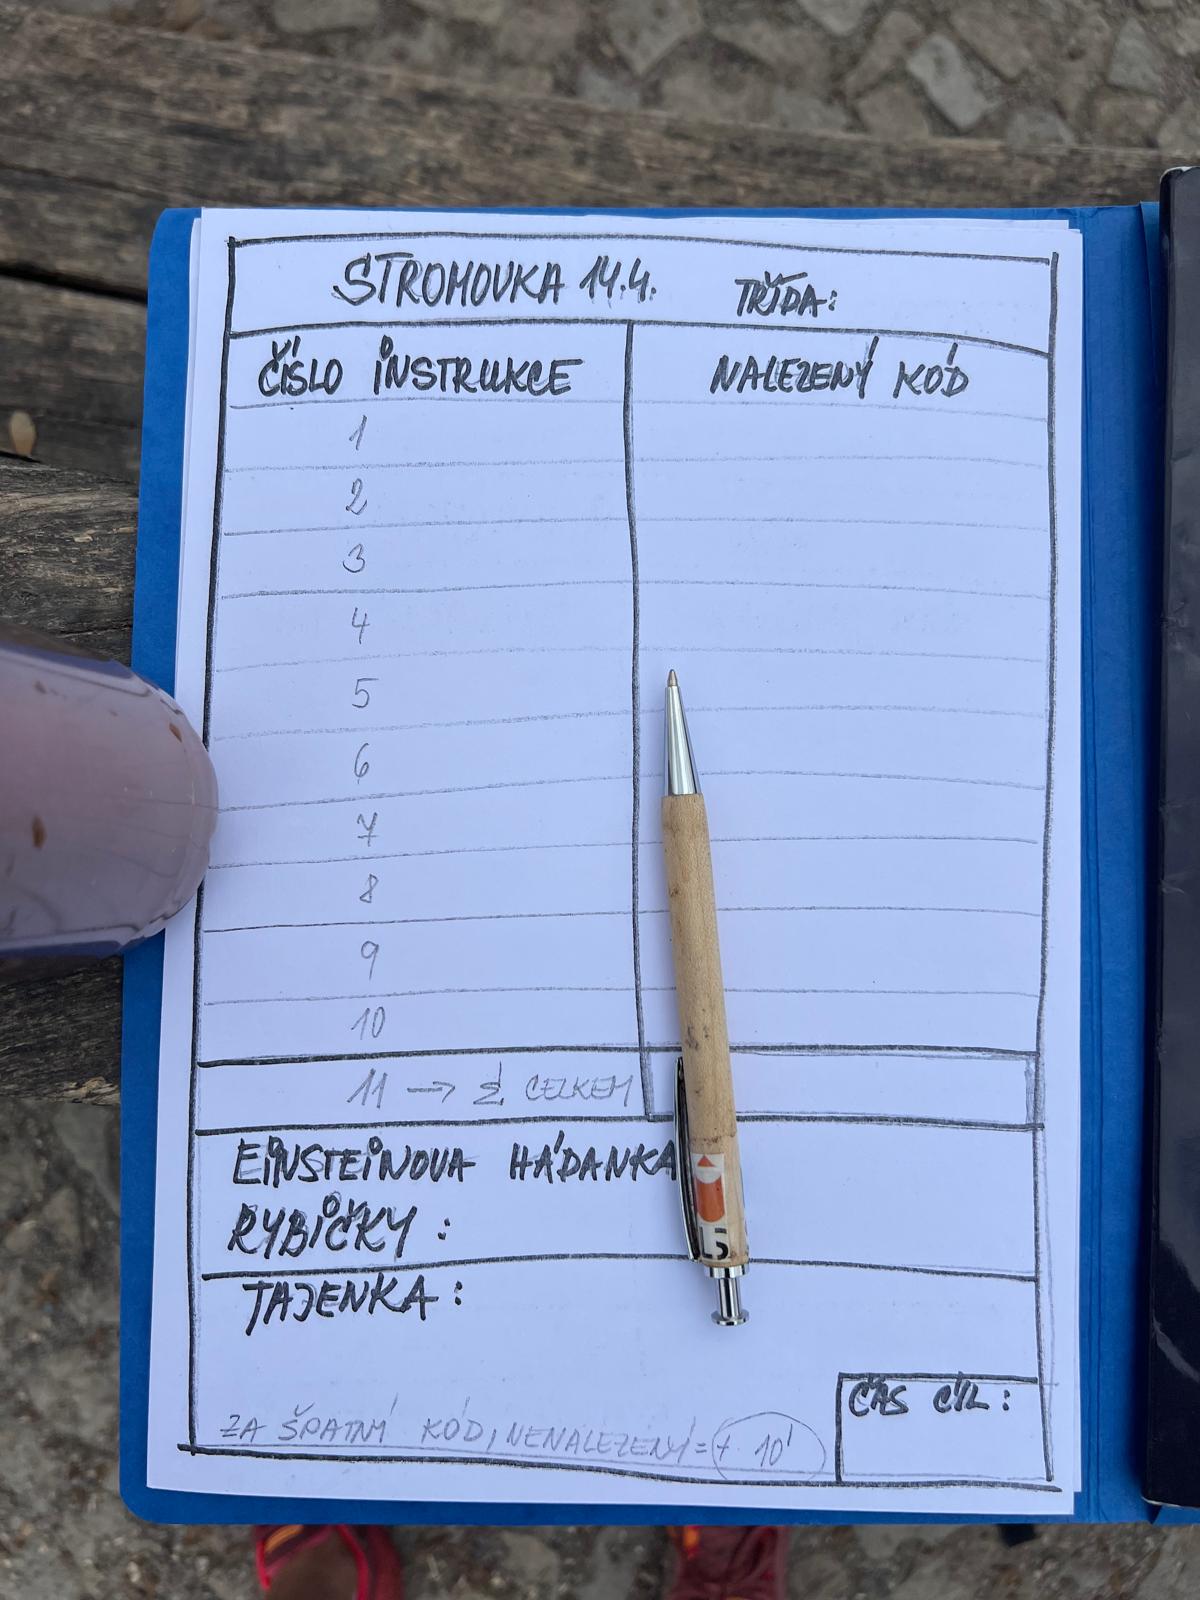 STROMOVKA 14.4. TŘÍDA:
ČÍSLO INSTRUKCE NALEZENÝ KÓD
1
2
3
4
5
6
7
8
9
10
11 → Σ CELKEM
EINSTEINOVA HÁDANKA
RYBIČKY :
TAJENKA :
ČAS CÍL :
ZA ŠPATNÝ KÓD, NENALEZENÝ = + 10'
L5